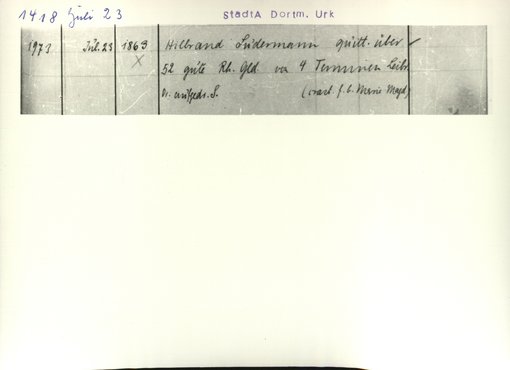 1418 Juli 23 StadtA Dortm. Urk
1973 Jul. 23 1863 Hilbrand Südermann quitt. über
X 52 gute Rh. Gld. von 4 Terminen Leibr.
m. aufgedr. S. (crast. f. b. Marie Magd)